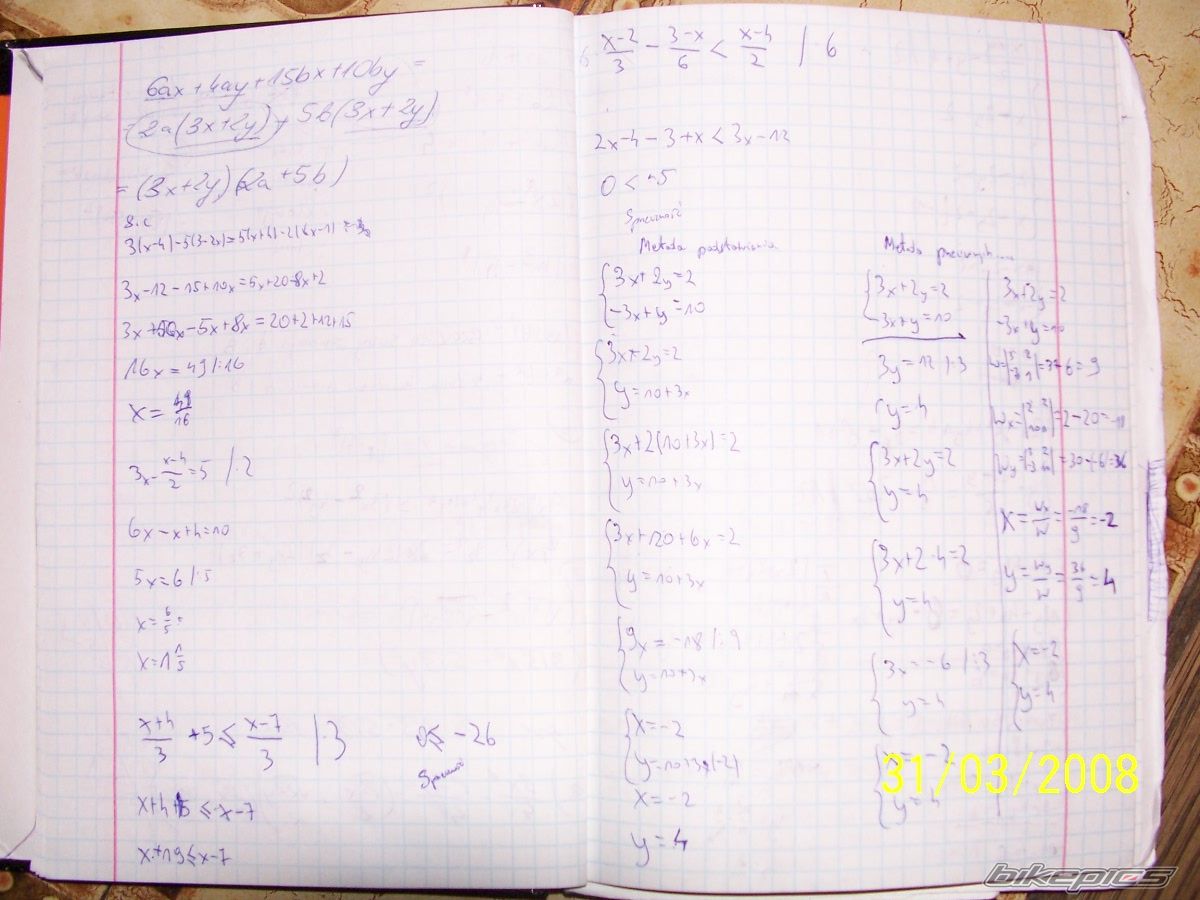 6ax+4ay+15bx+10by =
= 2a(3x+2y)+5b(3x+2y)
= (3x+2y)(2a+5b)
3(x-4)-5(3-2x)=5(x+4)-2(4x-1)
3x-12-15+10x=5x+20-8x+2
3x+10x-5x+8x=20+2+12+15
16x=49 |:16
x=49/16
3x-(x-4)/2=5 |·2
6x-x+4=10
5x=6 |:5
x=6/5=
x=1 1/5
(x+4)/3 +5 ≤ (x-7)/3 |·3
x+4+15 ≤ x-7
x+19 ≤ x-7
0 ≤ -26
Sprzeczność
(x-2)/3 - (3-x)/6 < (x-4)/2 | 6
2x-4-3+x < 3x-12
0 < -5
Sprzeczność
Metoda podstawiania
{3x+2y=2
-3x+y=10
{3x+2y=2
y=10+3x
{3x+2(10+3x)=2
y=10+3x
{3x+20+6x=2
y=10+3x
{9x=-18 |:9
y=10+3x
{x=-2
y=10+3·(-2)
x=-2
y=4
Metoda
{3x+2y=2
-3x+y=10
3y=12 |:3
{y=4
{3x+2y=2
y=4
{3x+2·4=2
y=4
{3x=-6 |:3
y=4
{x=-2
y=4
3x+2y=2
-3x+y=10
Wx=|2 2 10 1|=2-20=-18
=30+6=36
x=Wx/W=-18/9=-2
y=Wy/W=36/9=4
{x=-2
y=4
31/03/2008
bikepics